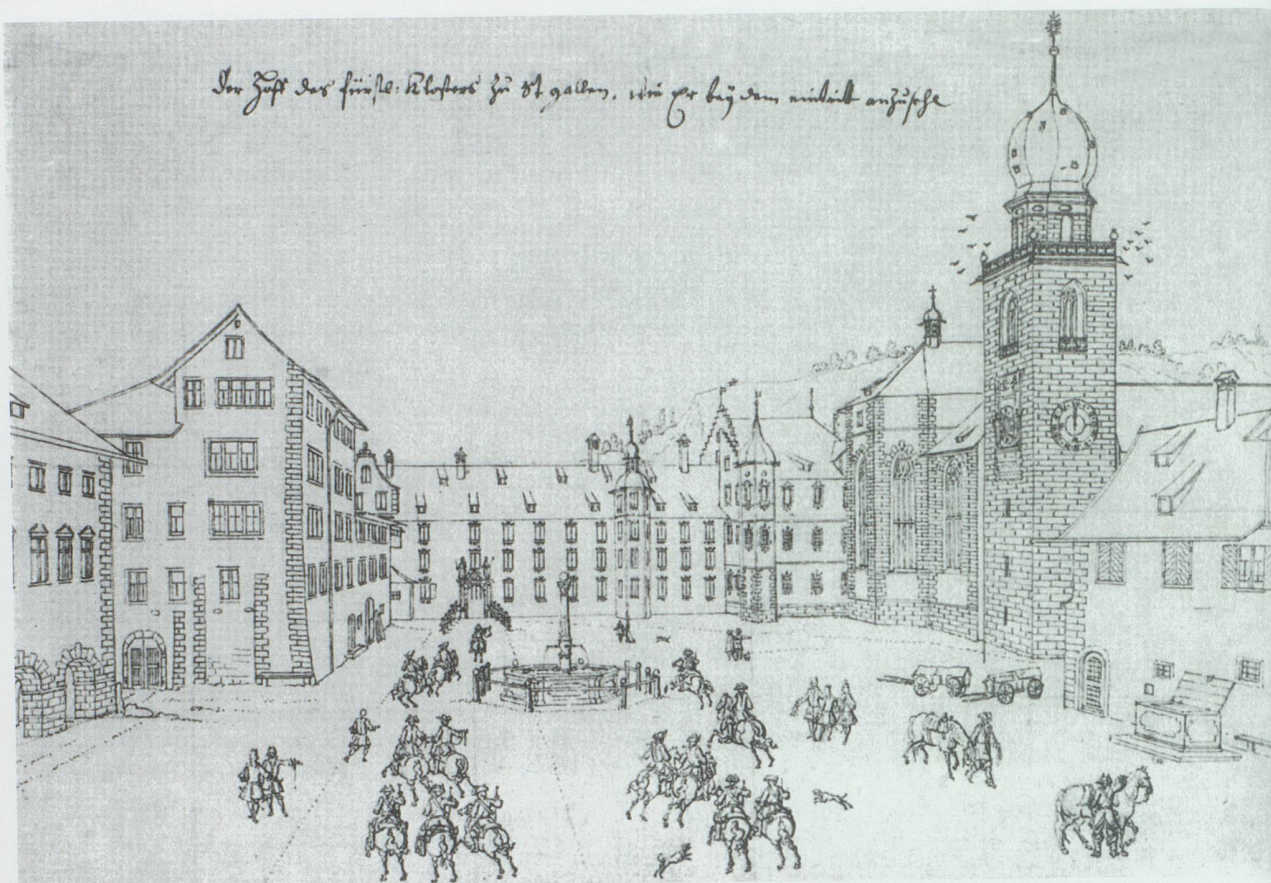 Der Hoff des fürstl: Klosters zu St gallen, wie Er bey dem eintritt anzusehe